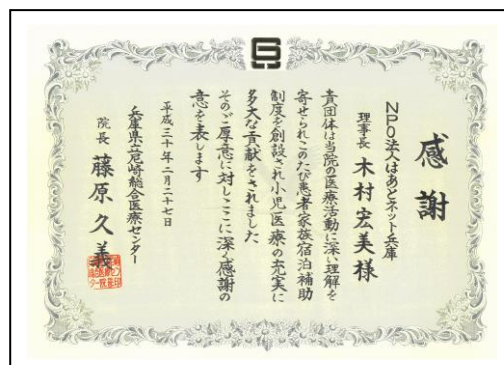 感謝
NPO法人はあとネット兵庫
理事長 木村宏美様
貴団体は当院の医療活動に深い理解を
寄せられこのたび患者家族宿泊補助
制度を創設され小児医療の充実に
多大な貢献をされました
そのご厚意に対しここに深く感謝の
意を表します
平成三十年二月二十七日
兵庫県立尼崎総合医療センター
院長 藤原久義